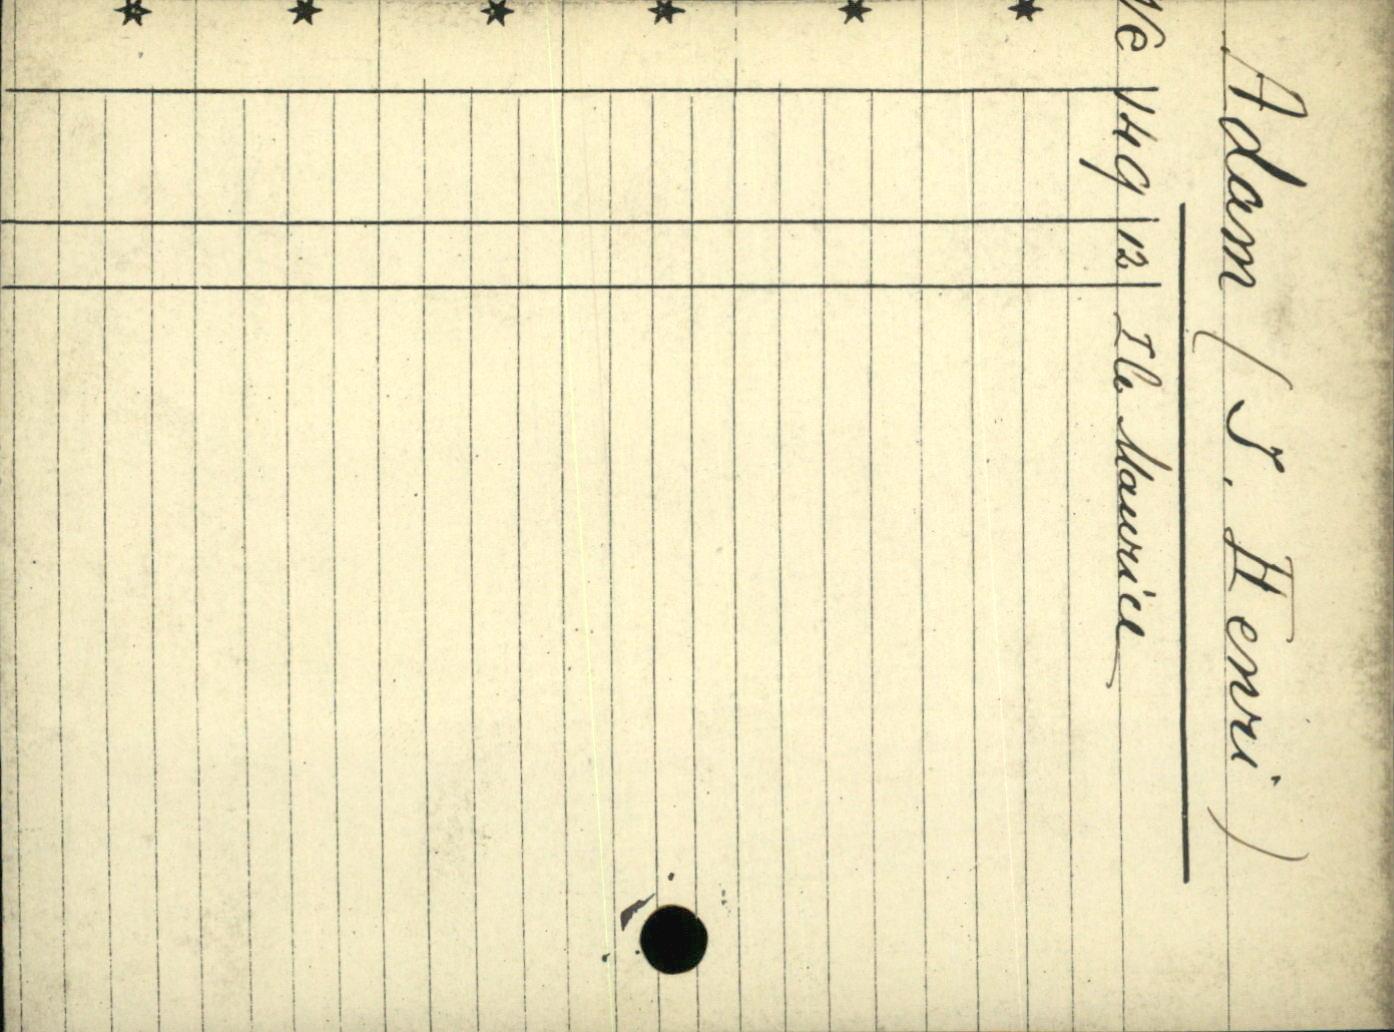 Adam (J. Henri)
Ve 149 12 Ile Maurice